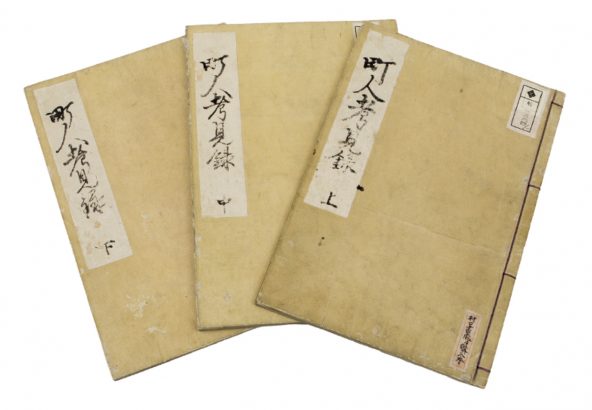 町人考見録
上
町人考見録
中
町人考見録
下